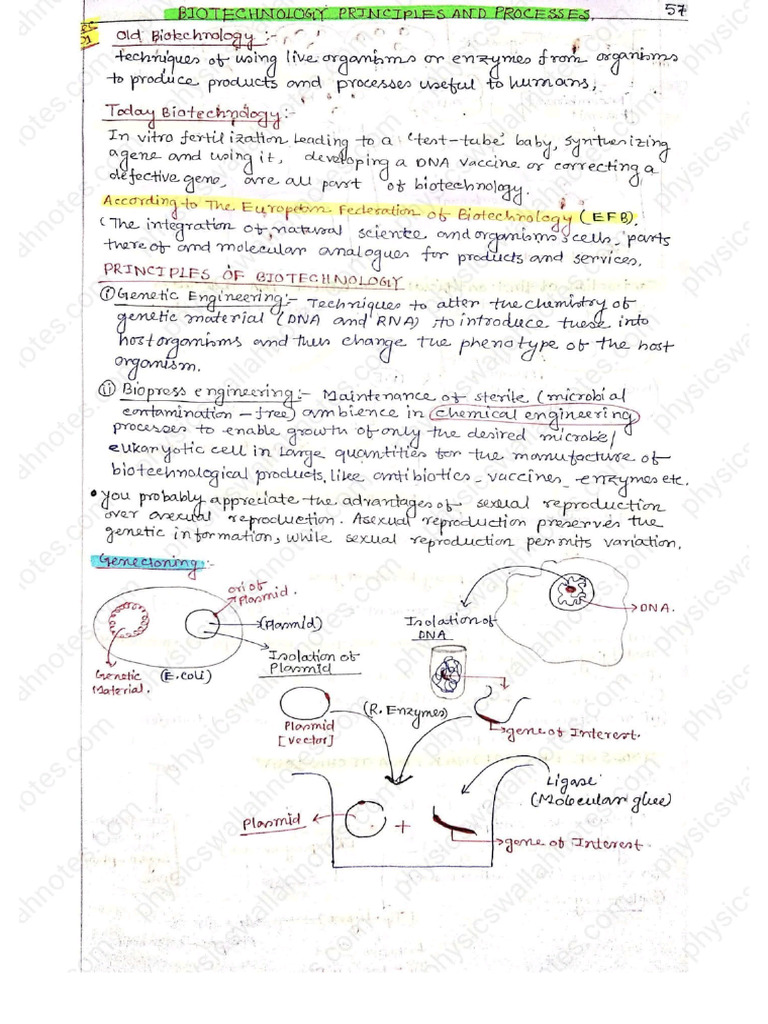 BIOTECHNOLOGY PRINCIPLES AND PROCESSES.
57
Old Biotechnology :-
techniques of using live organisms or enzymes from organisms
to produce products and processes useful to humans,
Today Biotechnology:-
In vitro fertilization leading to a 'test-tube' baby, synthesizing
a gene and using it, developing a DNA vaccine or correcting a
defective gene, are all part of biotechnology.
According to The European Federation of Biotechnology (EFB).
(The integration of natural science and organisms, cells, parts
there of and molecular analogues for products and services.
PRINCIPLES OF BIOTECHNOLOGY
(i) Genetic Engineering:- Techniques to alter the chemistry of
genetic material (DNA and RNA), to introduce these into
host organisms and thus change the phenotype of the host
organism.
(ii) Biopress engineering:- Maintenance of sterile (microbial
contamination - free) ambience in chemical engineering
processes to enable growth of only the desired microbe/
eukaryotic cell in large quantities for the manufacture of
biotechnological products, like antibiotics, vaccines, enzymes etc.
• You probably appreciate the advantages of sexual reproduction
over asexual reproduction. Asexual reproduction preserves the
genetic information, while sexual reproduction permits variation.
Genecloning :-
ori of
Plasmid.
(Plasmid)
Isolation of
Plasmid
Genetic
Material.
(E.coli)
Isolation of
DNA
DNA.
Plasmid
[Vector]
(R. Enzymes)
gene of Interest.
Ligase
(Molecular glue)
Plasmid
+
gene of Interest.
physicswallahnotes.com